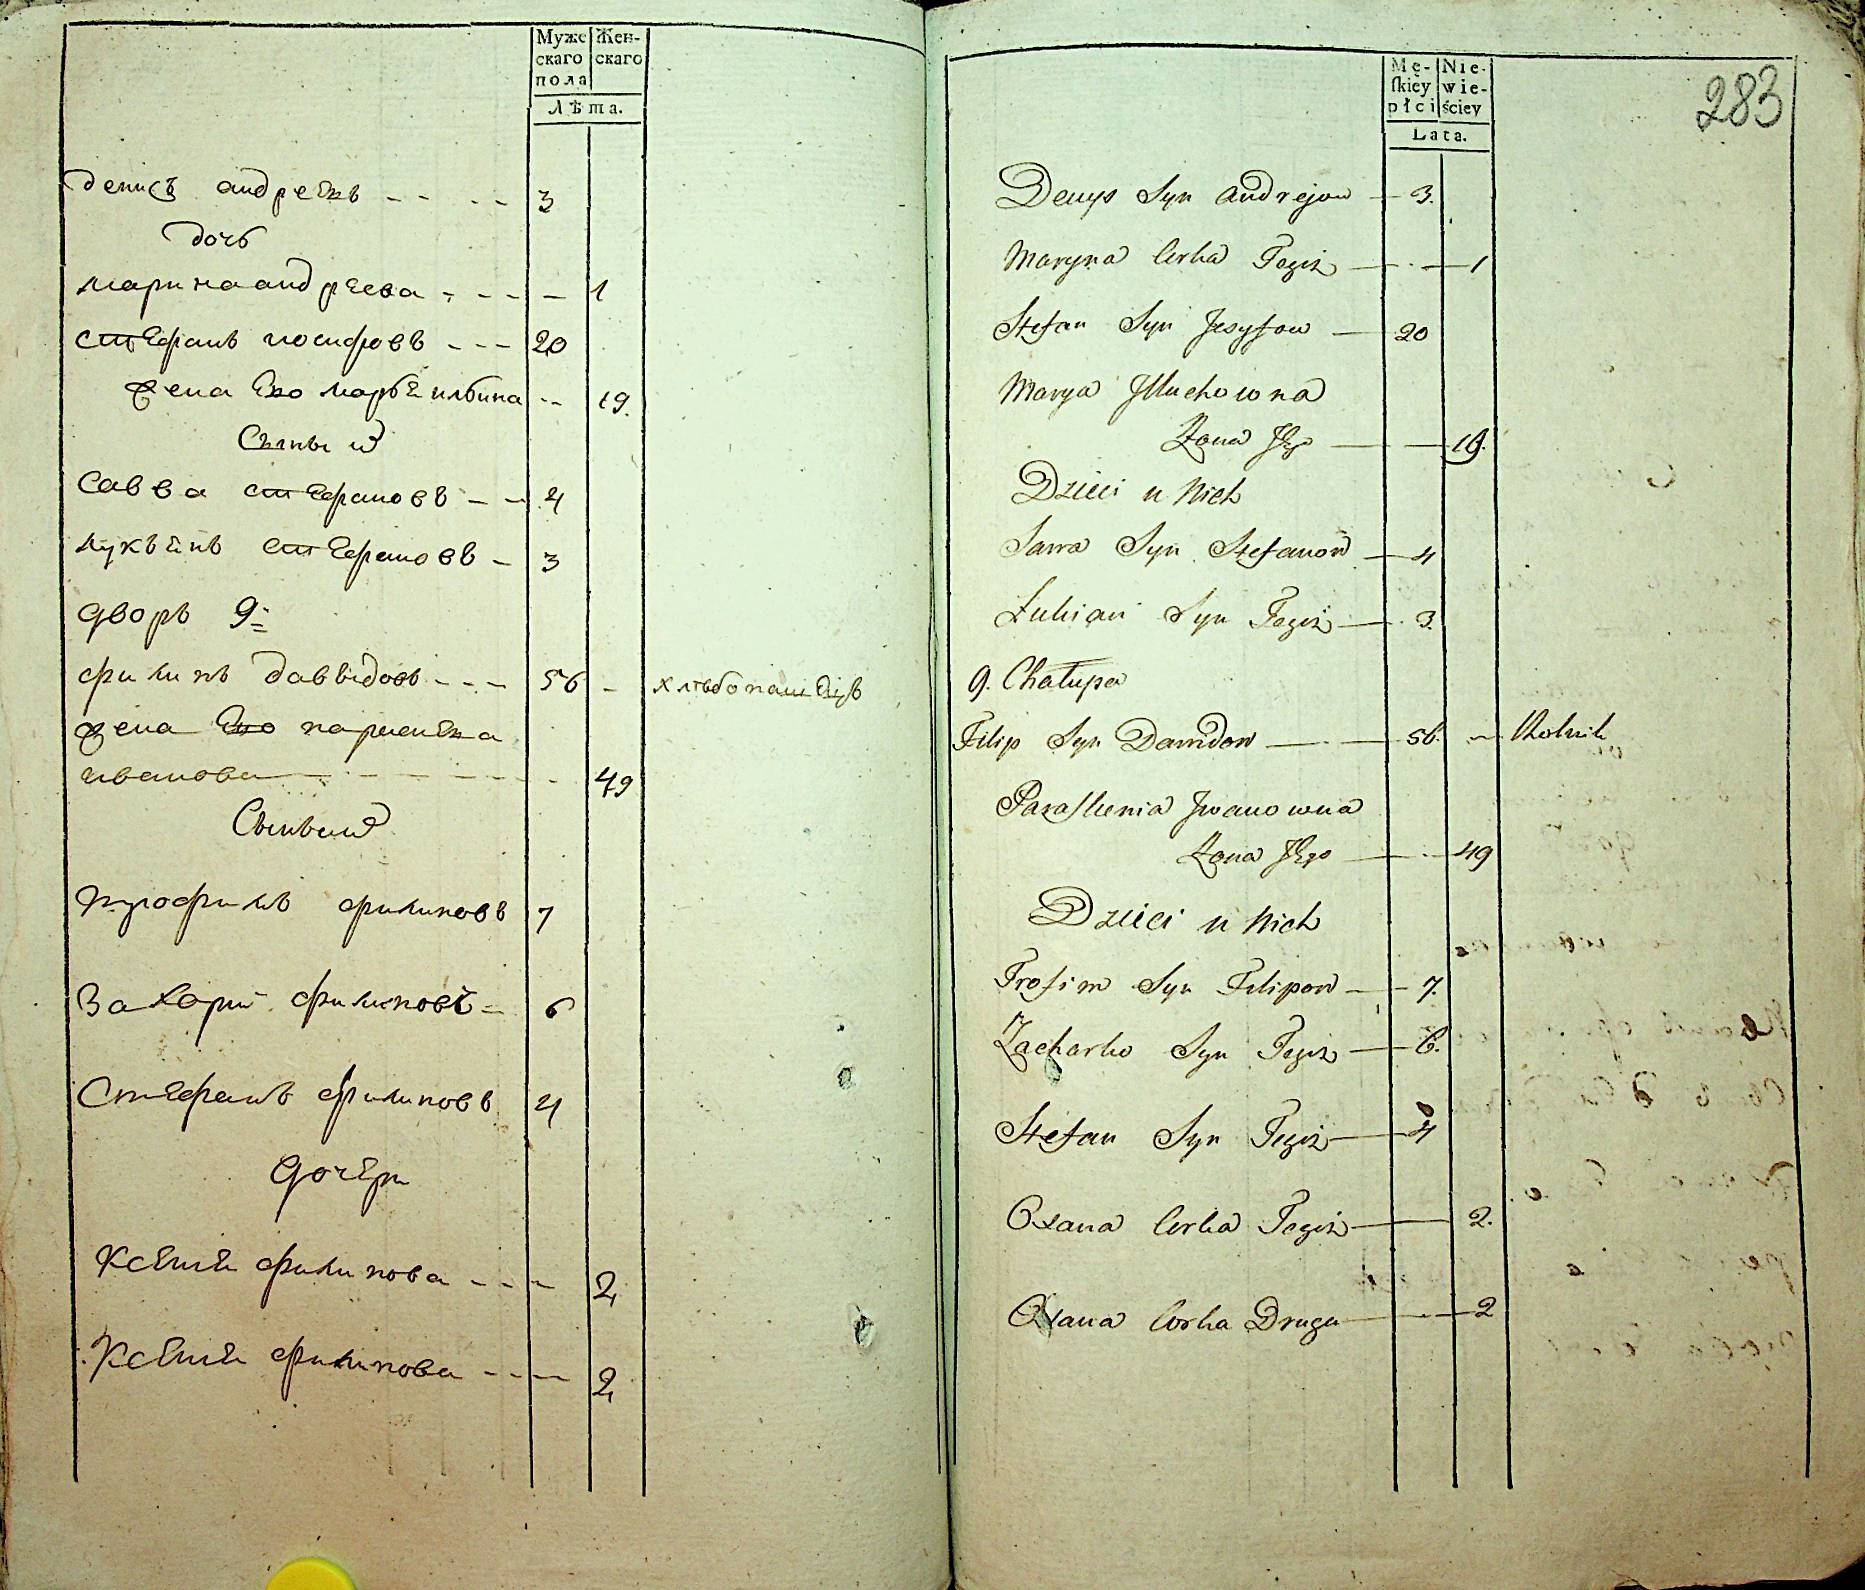 Муже
скаго
пола
Жен-
скаго
Лѣта.
денисъ андреевъ 3
дочь
марина андреева 1
стефанъ иосифовъ 20
жена Его марья ильина 19.
Сыны их
Савва стефановъ 4
лукьянъ стефановъ 3
дворъ 9:
филипъ давыдовъ 56 хлѣбопашецъ
жена Его парасковья
иванова 49
Сыны их
трофимъ филиповъ 7
Захарий филиповъ 6
Стефанъ филиповъ 4
дочери
Ксения филипова 2
Ксения филипова 2
Mę-
ſkiey
płci
Nie-
wie-
ściey
Lata.
283
Denys Syn Andrejow 3.
Maryna Corka Tegiż 1
Stefan Syn Jesyfow 20
Marya Illuchowna
Żona Jego 19.
Dzieci u Nich
Sawa Syn Stefanow 4
Łukian Syn Tegiż 3.
9. Chałupa
Filip Syn Dawidow 56. Rolnik
Paraskewia Jwanowna
Żona Jego 49
Dzieci u Nich
Trofim Syn Filipow 7.
Zacharko Syn Tegiż 6.
Stefan Syn Tegiż 4
Oxana Corka Tegiż 2.
Oxana Corka Druga 2